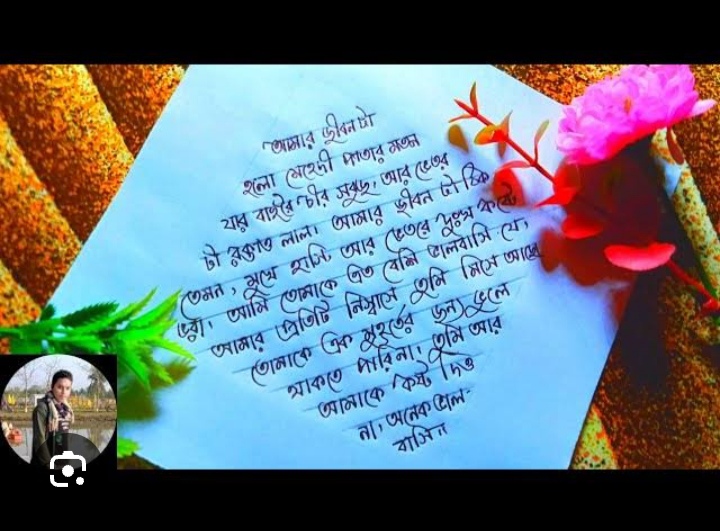 "আমার জীবন টা
হলো মেহেদী পাতার মতন
যার বাইরে টার সবুজ, আর ভেতর
টা রক্তাত লাল। আমার জীবন টা ঠিক
তেমন, মুখে হাসি আর ভেতরে দুঃখ কষ্টে
ভরা, আমি তোমাকে এত বেশি ভালবাসি যে,
আমার প্রতিটি নিশ্বাসে তুমি মিসে আছো
তোমাকে এক মুহূর্তের জন্য ভুলে
থাকতে পারিনা, তুমি আর
আমাকে কষ্ট দিও
না, অনেক ভাল-
বাসি"